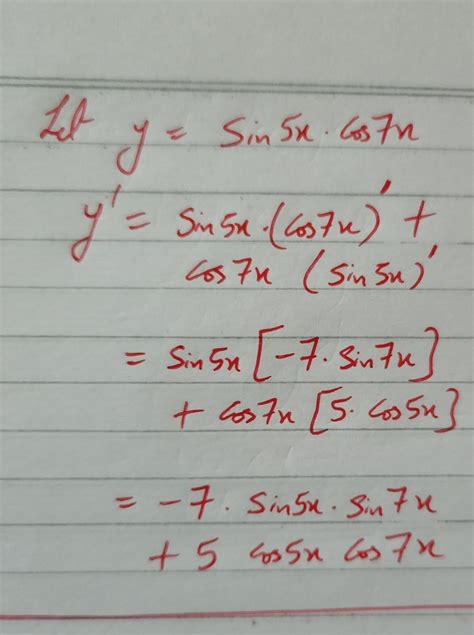 Let y = Sin5x · Cos7x
y' = Sin5x · (Cos7x)' +
Cos7x (Sin5x)'
= Sin5x [-7 · Sin7x]
+ Cos7x [5 · Cos5x]
= -7 · Sin5x · Sin7x
+ 5 Cos5x Cos7x